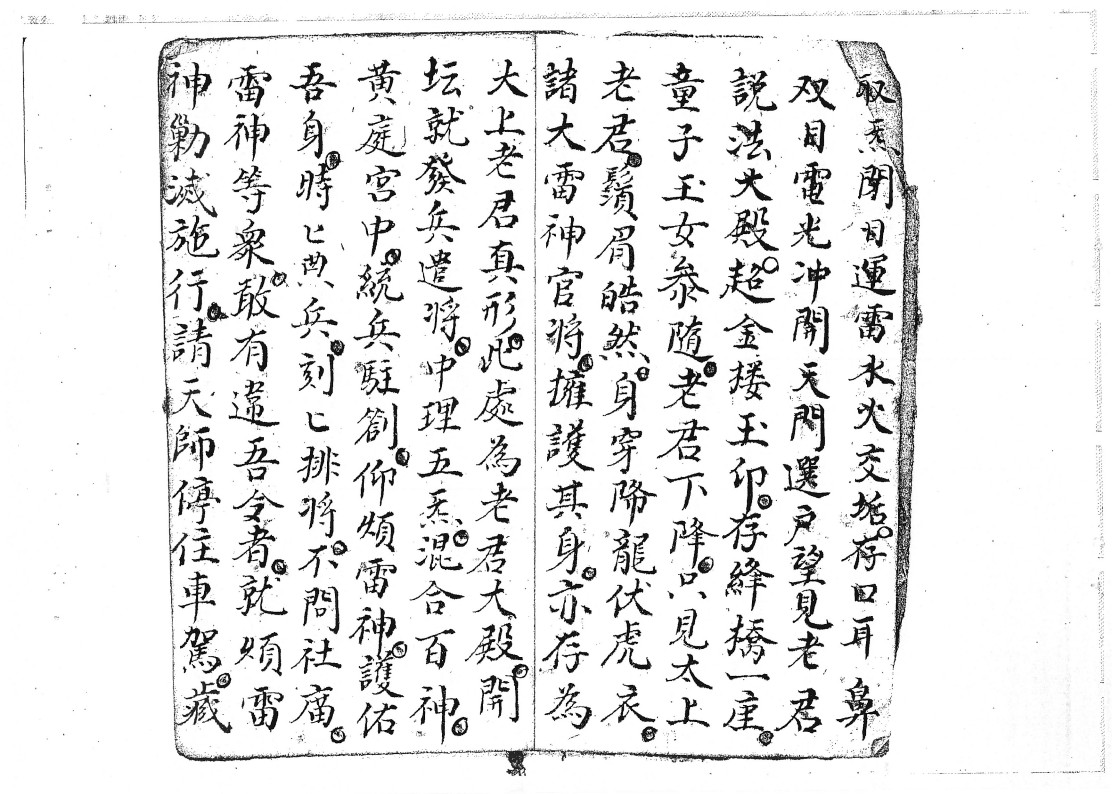 取炁閉目運雷水火交垢存口耳鼻
双目電光冲開天門選戶望見老君
説法大殿超金楼玉印存絳橋一座
童子玉女叅随老君下降只見太上
老君鬚眉皓然身穿降龍伏虎衣
諸大雷神官将擁護其身亦存為
大上老君真形此處為老君大殿開
坛就發兵遣将中理五炁混合百神
黄庭宮中統兵駐劄仰煩雷神護佑
吾身時匕典兵刻匕排将不問社庙
雷神等衆敢有違吾令者就煩雷
神勦滅施行請天師停住車駕藏